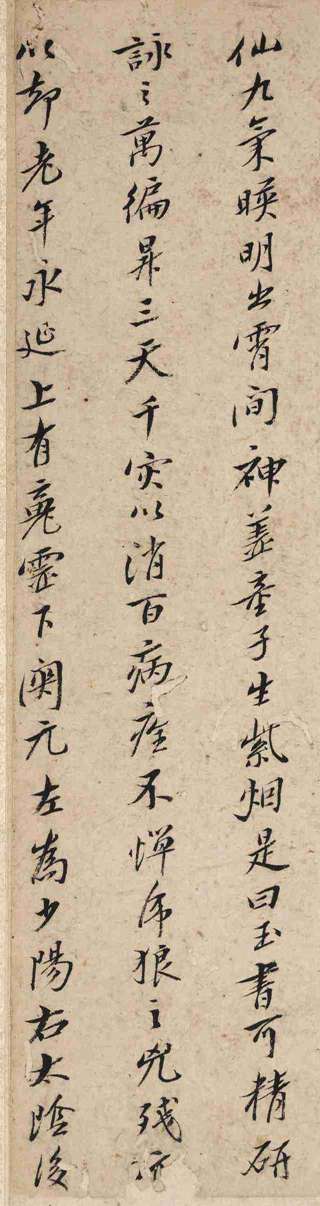 仙九氣暎明出霄間神盖童子生紫烟是曰玉書可精研
詠之萬徧昇三天千灾以消百病痊不憚虎狼之兇残亦
以却老年永延上有魂霊下関元左為少陽右太陰後